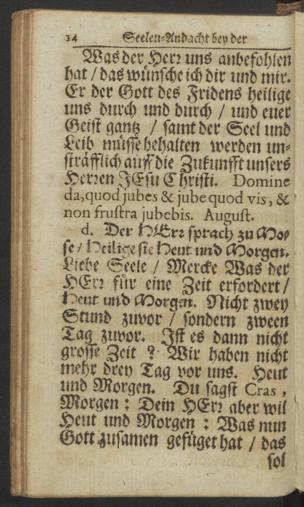 34 Seelen-Andacht bey der
Was der Herr uns anbefohlen
hat / das wünsche ich dir und mir.
Er der Gott des Fridens heilige
uns durch und durch / und euer
Geist gantz / samt der Seel und
Leib müsse behalten werden un-
sträfflich auff die Zukunfft unsers
Herren JEsu Christi. Domine
da, quod jubes & jube quod vis, &
non frustra jubebis. August.
d. Der HErr sprach zu Mo-
se / Heilige sie Heut und Morgen.
Liebe Seele / Mercke Was der
HErr für eine Zeit erfordert /
Heut und Morgen. Nicht zwey
Stund zuvor / sondern zween
Tag zuvor. Jst es dann nicht
grosse Zeit ? Wir haben nicht
mehr drey Tag vor uns. Heut
und Morgen. Du sagst Cras,
Morgen : Dein HErr aber wil
Heut und Morgen : Was nun
Gott zusamen gefüget hat / das
sol